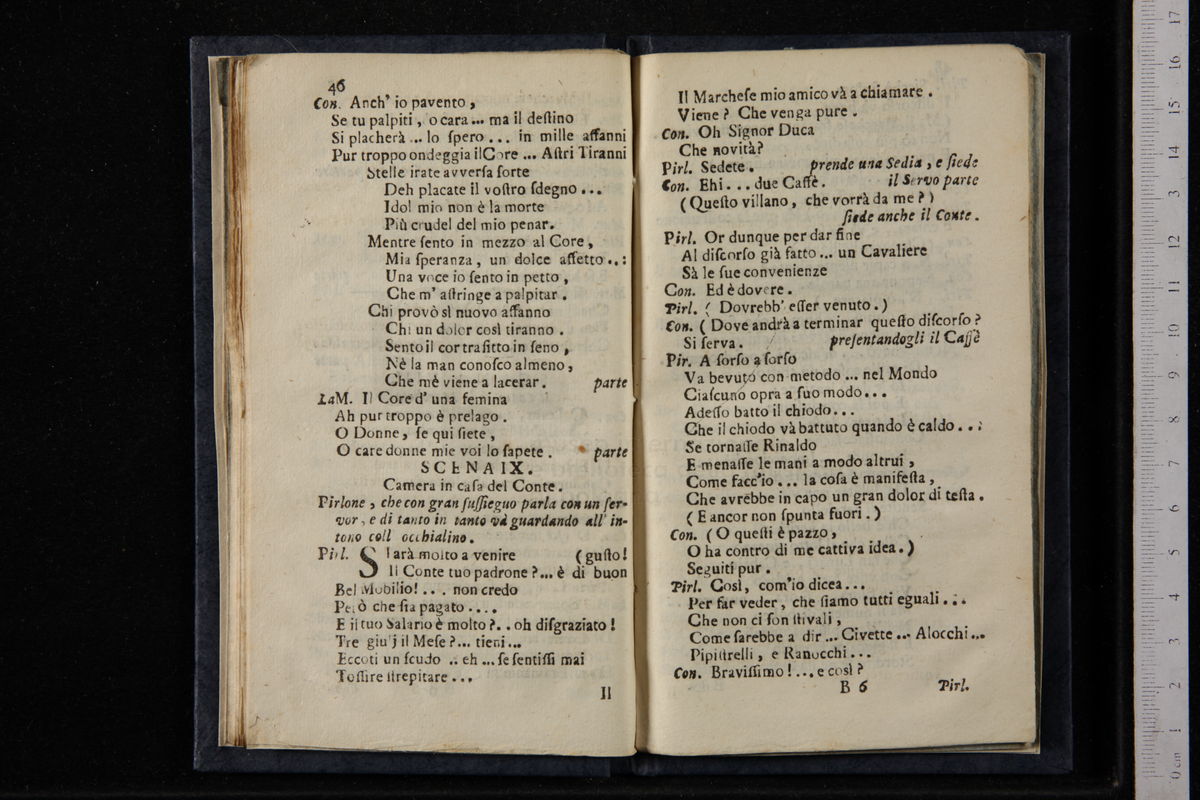 46
Con. Anch' io pavento,
Se tu palpiti, o cara... ma il deſtino
Si placherà ... lo ſpero... in mille affanni
Pur troppo ondeggia il Core ... Aſtri Tiranni
Stelle irate avverſa ſorte
Deh placate il voſtro ſdegno...
Idol mio non è la morte
Più crudel del mio penar.
Mentre ſento in mezzo al Core,
Mia ſperanza, un dolce affetto..:
Una voce io ſento in petto,
Che m' aſtringe a palpitar.
Chi provò sì nuovo affanno
Chi un dolor così tiranno.
Sento il cor trafitto in ſeno,
Nè la man conoſco almeno,
Che mè viene a lacerar. parte
LaM. Il Core d' una femina
Ah pur troppo è prelago.
O Donne, ſe qui ſiete,
O care donne mie voi lo ſapete. parte
SCENA IX.
Camera in caſa del Conte.
Pirlone, che con gran ſuſſieguo parla con un ſer-
vor, e di tanto in tanto và guardando all' in-
tono coll occhialino.
Pirl. SIarà molto a venire (guſto!
Il Conte tuo padrone?... è di buon
Bel Mobilio!... non credo
Però che ſia pagato....
E il tuo Salario è molto?.. oh diſgraziato!
Tre giulj il Meſe?... tieni...
Eccoti un ſcudo .. eh ... ſe ſentiſſi mai
Toſſire ſtrepitare...
Il
Il Marcheſe mio amico và a chiamare.
Viene? Che venga pure.
Con. Oh Signor Duca
Che novità?
Pirl. Sedete. prende una Sedia, e ſiede
Con. Ehi... due Caffè. il Servo parte
(Queſto villano, che vorrà da me?)
ſiede anche il Conte.
Pirl. Or dunque per dar fine
Al diſcorſo già fatto... un Cavaliere
Sà le ſue convenienze
Con. Ed è dovere.
Pirl. (Dovrebb' eſſer venuto.)
Con. (Dove andrà a terminar queſto diſcorſo?
Si ſerva. preſentandogli il Caffè
Pir. A ſorſo a ſorſo
Va bevuto con metodo ... nel Mondo
Ciaſcuno opra a ſuo modo...
Adeſſo batto il chiodo...
Che il chiodo và battuto quando è caldo...
Se tornaſſe Rinaldo
E menaſſe le mani a modo altrui,
Come facc'io... la coſa è manifeſta,
Che avrebbe in capo un gran dolor di teſta.
(E ancor non ſpunta fuori.)
Con. (O queſti è pazzo,
O ha contro di me cattiva idea.)
Seguiti pur.
Pirl. Così, com'io dicea...
Per far veder, che ſiamo tutti eguali...
Che non ci ſon ſtivali,
Come ſarebbe a dir ... Civette ... Alocchi...
Pipiſtrelli, e Ranocchi...
Con. Braviſſimo!... e così?
B 6 Pirl.